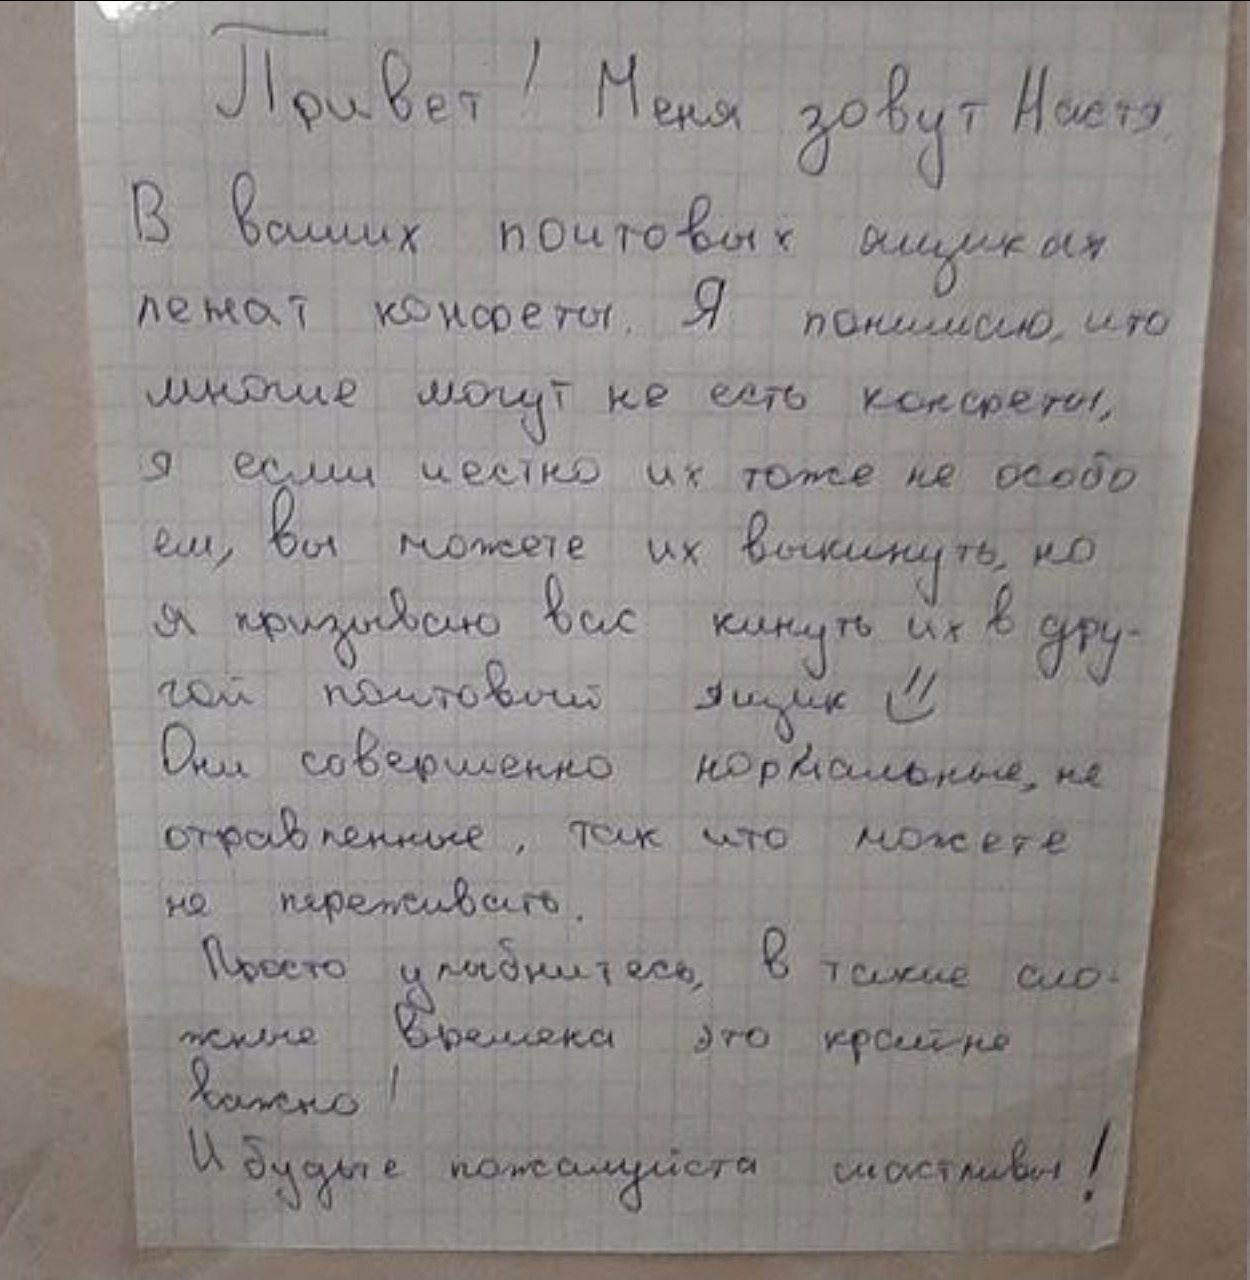 Привет! Меня зовут Настя
В ваших почтовых ящиках
лежат конфеты. Я понимаю, что
многие могут не есть конфеты,
я если честно их тоже не особо
ем, вы можете их выкинуть, но
я призываю вас кинуть их в дру-
гой почтовый ящик
Они совершенно нормальные, не
отравленные, так что можете
не переживать.
Просто улыбнитесь, в такие сло-
жные времена это крайне
важно!
И будьте пожалуйста счастливы!